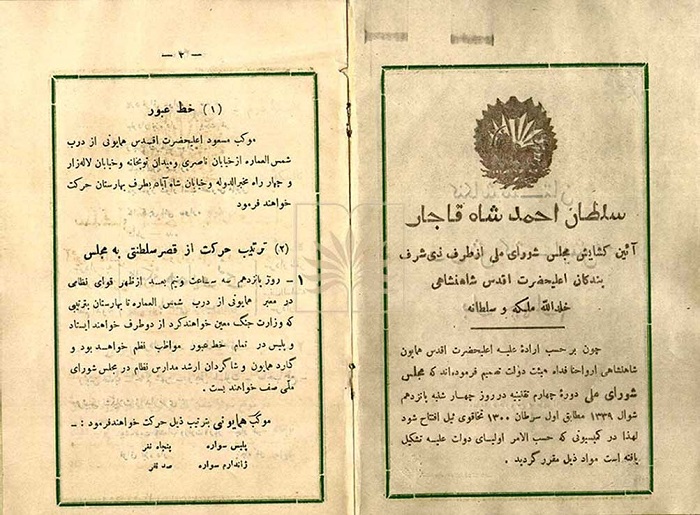 سلطان احمد شاه قاجار
آئین کشایش مجلس شورای ملی از طرف ذی شرف
بندگان اعلیحضرت اقدس شاهنشاهی
خلدالله ملکه و سلطانه
چون بر حسب ارادهٔ علیه اعلیحضرت اقدس همایون
شاهنشاهی ارواحنا فداه هیئت دولت تصمیم فرموده‌اند که مجلس
شورای ملی دورهٔ چهارم تقنینیه در روز چهار شنبه پانزدهم
شوال ۱۳۳۹ مطابق اول سرطان ۱۳۰۰ تخاقوی ئیل افتتاح شود
لهذا در کمیسیونی که حسب الامر اولیای دولت علیه تشکیل
یافته است مواد ذیل مقرر گردید .
— ۲ —
(۱) خط عبور
موکب مسعود اعلیحضرت اقدس همایونی از درب
شمس العماره از خیابان ناصری و میدان توپخانه و خیابان لاله‌زار
و چهار راه مخبرالدوله و خیابان شاه آباد بطرف بهارستان حرکت
خواهند فرمود
(۲) ترتیب حرکت از قصر سلطنتی به مجلس
۱ – روز پانزدهم سه ساعت ونیم بعد از ظهر قوای نظامی
در معبر همایونی از درب شمس العماره تا بهارستان بترتیبی
که وزارت جنگ معین خواهند کرد از دو طرف خواهند ایستاد
و پلیس در تمام خط عبور مواظب نظم خواهد بود و
گارد همایون و شاگردان ارشد مدارس نظام در مجلس شورای
ملی صف خواهند بست .
موکب همایونی بترتیب ذیل حرکت خواهند فرمود : –
پلیس سواره پنجاه نفر
ژاندارم سواره صد نفر